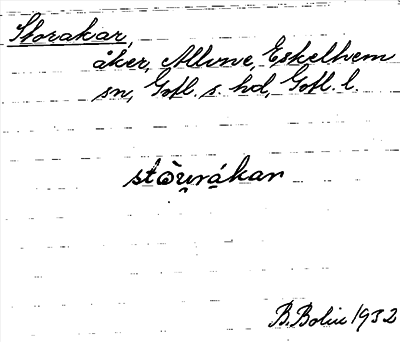 Storakar,
åker, Allvne, Eskelhem
sn, Gotl. s. hd, Gotl. l.
stò̰u̯rákar
B. Bolin 1932